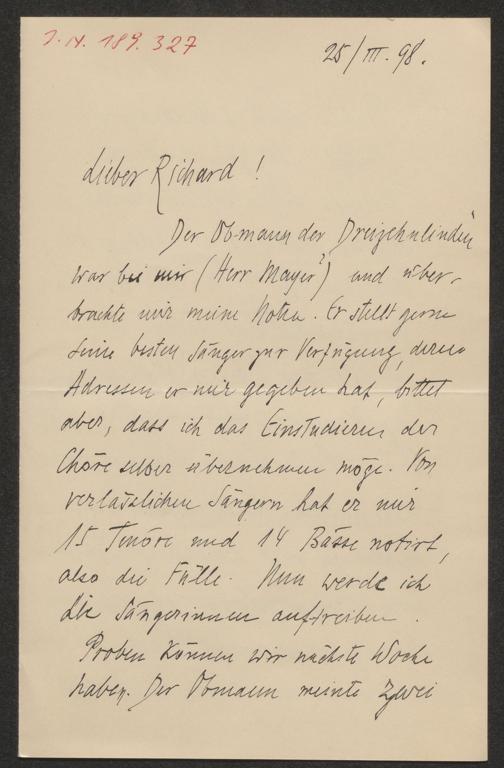 I.N. 189.327
25/III. 98.
Lieber Richard!
Der Obmann der „Dreizehnlinden"
war bei mir (Herr Mayer?) und über-
brachte mir meine Noten. Er stellt gerne
seine besten Sänger zur Verfügung, deren
Adressen er mir gegeben hat, bittet
aber, dass ich das Einstudieren der
Chöre selber übernehmen möge. Von
verlässlichen Sängern hat er mir
15 Tenöre und 14 Bässe notirt,
also die Fülle. Nun werde ich
die Sängerinnen auftreiben.
Proben können wir nächste Woche
haben. Der Obmann meinte zwei